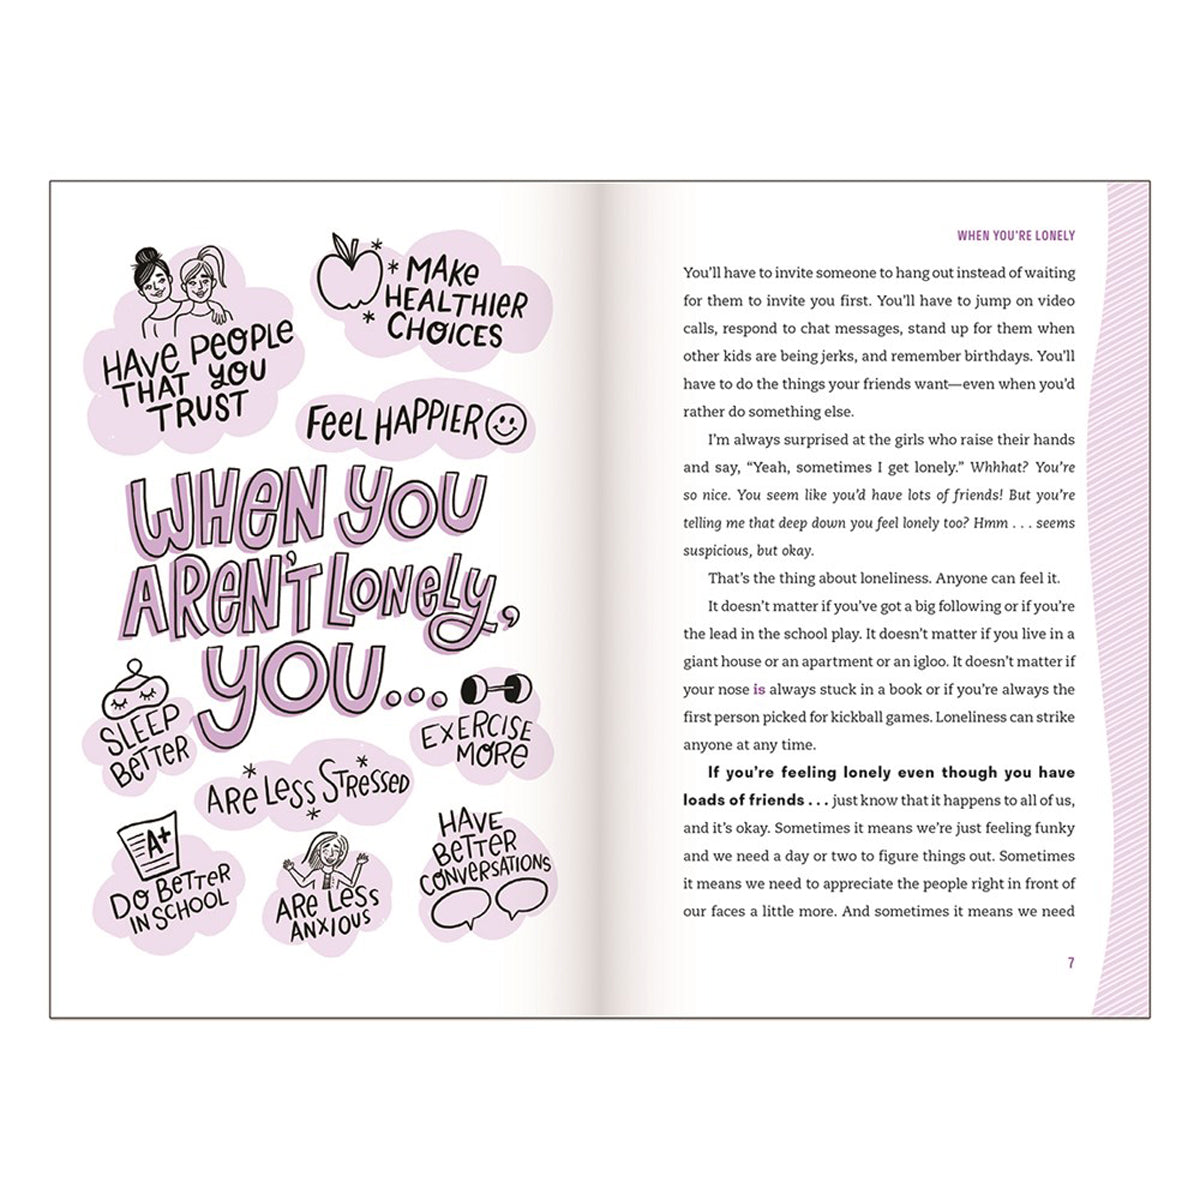 HAVE PEOPLE
THAT YOU
TRUST
MAKE
HEALTHIER
CHOICES
FEEL HAPPIER
WHEN YOU
AREN'T LONELY,
YOU...
SLEEP
BETTER
EXERCISE
MORE
ARE LESS STRESSED
A+
DO BETTER
IN SCHOOL
ARE LESS
ANXIOUS
HAVE
BETTER
CONVERSATIONS
WHEN YOU'RE LONELY
You'll have to invite someone to hang out instead of waiting
for them to invite you first. You'll have to jump on video
calls, respond to chat messages, stand up for them when
other kids are being jerks, and remember birthdays. You'll
have to do the things your friends want—even when you'd
rather do something else.
I'm always surprised at the girls who raise their hands
and say, “Yeah, sometimes I get lonely.” Whhhat? You're
so nice. You seem like you'd have lots of friends! But you're
telling me that deep down you feel lonely too? Hmm . . . seems
suspicious, but okay.
That's the thing about loneliness. Anyone can feel it.
It doesn't matter if you've got a big following or if you're
the lead in the school play. It doesn't matter if you live in a
giant house or an apartment or an igloo. It doesn't matter if
your nose is always stuck in a book or if you're always the
first person picked for kickball games. Loneliness can strike
anyone at any time.
If you're feeling lonely even though you have
loads of friends . . . just know that it happens to all of us,
and it's okay. Sometimes it means we're just feeling funky
and we need a day or two to figure things out. Sometimes
it means we need to appreciate the people right in front of
our faces a little more. And sometimes it means we need
7